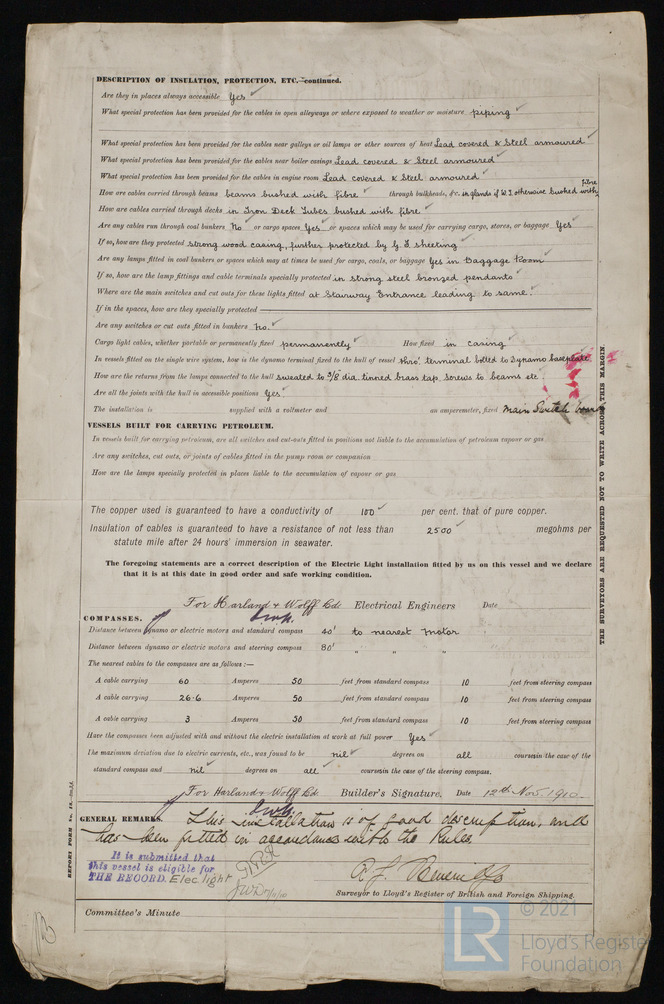 DESCRIPTION OF INSULATION, PROTECTION, ETC.—continued.
Are they in places always accessible Yes ✓
What special protection has been provided for the cables in open alleyways or where exposed to weather or moisture piping ✓
What special protection has been provided for the cables near galleys or oil lamps or other sources of heat Lead covered & Steel armoured ✓
What special protection has been provided for the cables near boiler casings Lead covered & Steel armoured ✓
What special protection has been provided for the cables in engine room Lead covered & Steel armoured ✓
How are cables carried through beams beams bushed with fibre ✓ through bulkheads, &c. in glands if W.T. otherwise bushed with fibre
How are cables carried through decks in Iron Deck Tubes bushed with fibre ✓
Are any cables run through coal bunkers No ✓ or cargo spaces Yes ✓ or spaces which may be used for carrying cargo, stores, or baggage Yes ✓
If so, how are they protected strong wood casing, further protected by G.I. sheeting ✓
Are any lamps fitted in coal bunkers or spaces which may at times be used for cargo, coals, or baggage Yes in Baggage Room ✓
If so, how are the lamp fittings and cable terminals specially protected in strong steel bronzed pendants ✓
Where are the main switches and cut outs for these lights fitted at Stairway Entrance leading to same. ✓
If in the spaces, how are they specially protected
Are any switches or cut outs fitted in bunkers No. ✓
Cargo light cables, whether portable or permanently fixed permanently ✓ How fixed in casing ✓
In vessels fitted on the single wire system, how is the dynamo terminal fixed to the hull of vessel thro' terminal bolted to Dynamo baseplate
How are the returns from the lamps connected to the hull sweated to 3/8" dia. tinned brass tap screws to beams etc. ✓
Are all the joints with the hull in accessible positions Yes ✓
The installation is supplied with a voltmeter and an amperemeter, fixed Main Switch board
VESSELS BUILT FOR CARRYING PETROLEUM.
In vessels built for carrying petroleum, are all switches and cut-outs fitted in positions not liable to the accumulation of petroleum vapour or gas
Are any switches, cut outs, or joints of cables fitted in the pump room or companion
How are the lamps specially protected in places liable to the accumulation of vapour or gas
The copper used is guaranteed to have a conductivity of 100 ✓ per cent. that of pure copper.
Insulation of cables is guaranteed to have a resistance of not less than 2500 ✓ megohms per
statute mile after 24 hours' immersion in seawater.
The foregoing statements are a correct description of the Electric Light installation fitted by us on this vessel and we declare
that it is at this date in good order and safe working condition.
For Harland & Wolff Ld. Electrical Engineers Date
COMPASSES.
Distance between dynamo or electric motors and standard compass 40' to nearest motor
Distance between dynamo or electric motors and steering compass 80' " " "
The nearest cables to the compasses are as follows:—
A cable carrying 60 Amperes 50 feet from standard compass 10 feet from steering compass
A cable carrying 26.6 Amperes 50 feet from standard compass 10 feet from steering compass
A cable carrying 3 Amperes 50 feet from standard compass 10 feet from steering compass
Have the compasses been adjusted with and without the electric installation at work at full power Yes ✓
The maximum deviation due to electric currents, etc., was found to be nil ✓ degrees on all courses in the case of the
standard compass and nil ✓ degrees on all ✓ courses in the case of the steering compass.
For Harland & Wolff Ld. Builder's Signature. Date 12th Nov. 1910.
GENERAL REMARKS. This Installation is of good description, and
has been fitted in accordance with the Rules
It is submitted that
this vessel is eligible for
THE RECORD. Elec light
Surveyor to Lloyd's Register of British and Foreign Shipping.
Committee's Minute
THE SURVEYORS ARE REQUESTED NOT TO WRITE ACROSS THIS MARGIN.
© 2021
LR
Lloyd's Register
Foundation